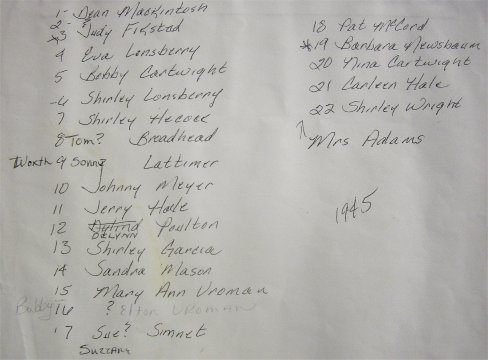 1- Dean Mackintosh
2- Judy Fikstad
*3
4 Eva Lonsberry
5 Bobby Cartwright
6 Shirley Lonsberry
7 Shirley Hecock
8 Tom? Broadhead
Worth 9 Sonny Lattimer
10 Johnny Meyer
11 Jerry Hale
12 Poulton
DELYNN
13 Shirley Garcia
14 Sandra Mason
15 Mary Ann Vroman
Bobby 16 ? Elton Vroman
17 Sue? Simnet
SUZZANE
18 Pat McCord
*19 Barbara Newsbaum
20 Nina Cartwright
21 Carleen Hale
22 Shirley Wright
Mrs Adams
1945